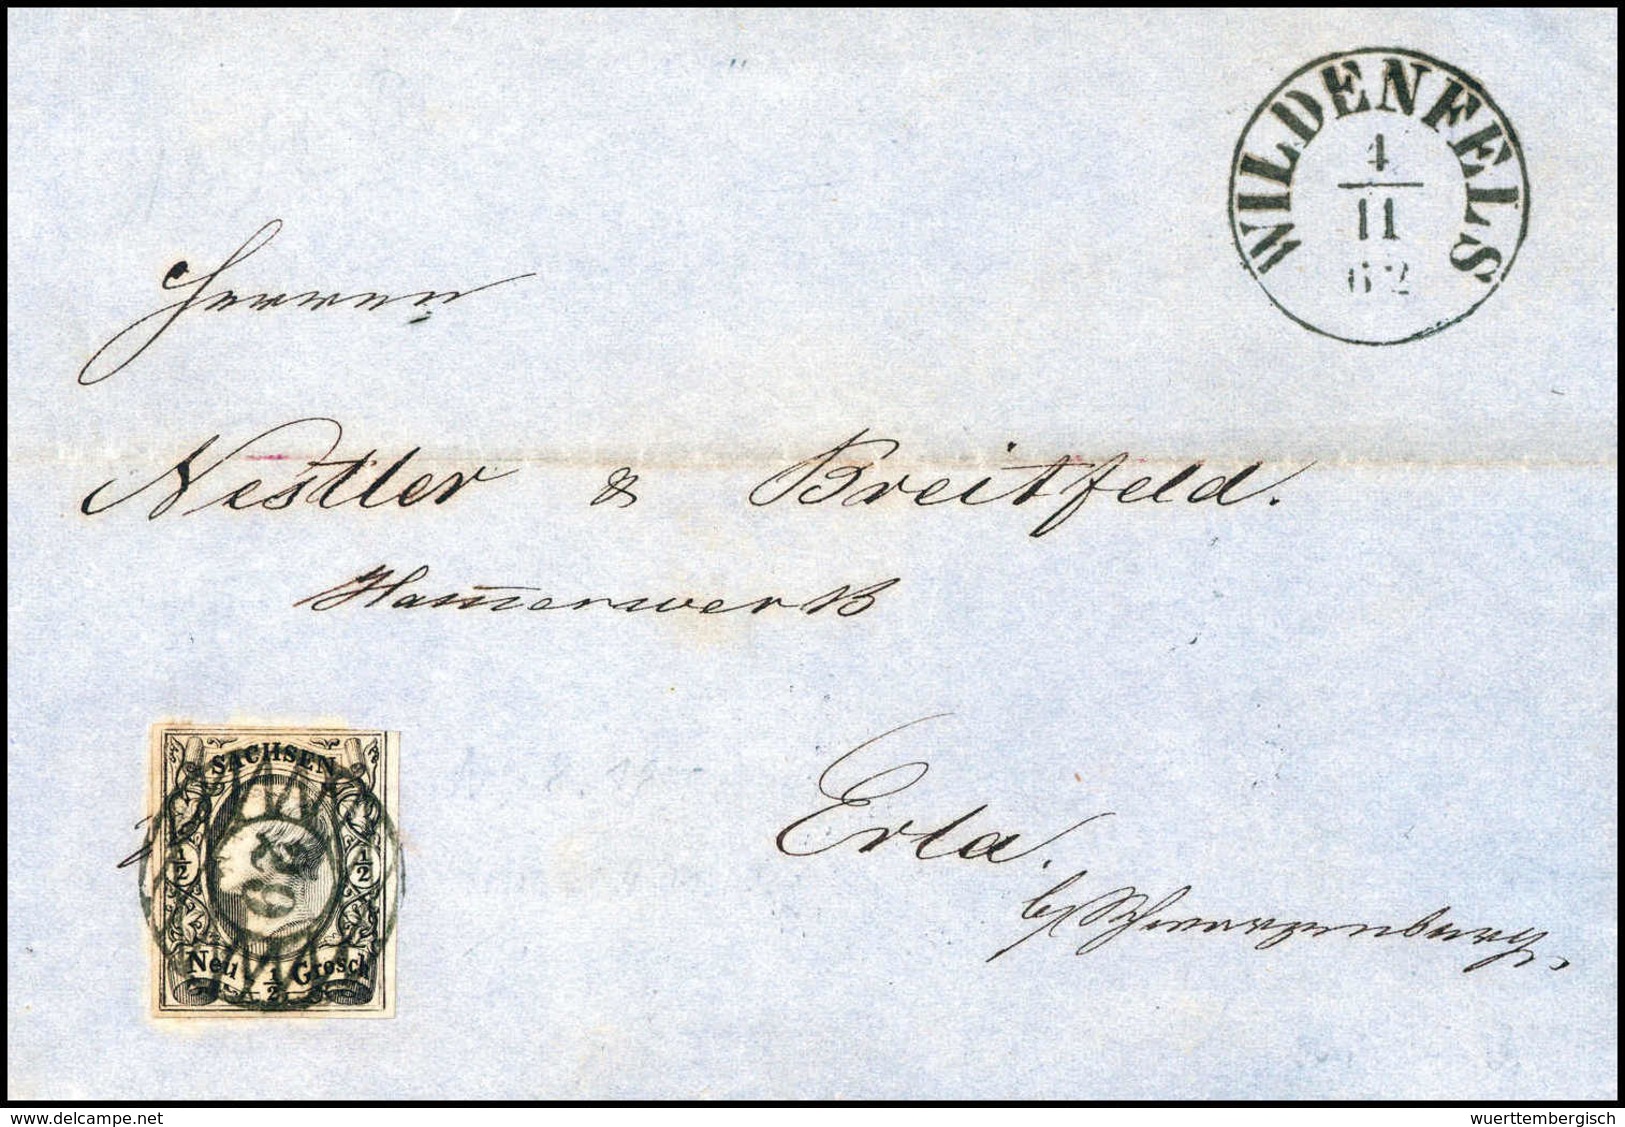 WILDENFELS
4
11
62
Herren
Nestler & Breitfeld.
Ham̅erwerk
Erla.
b/Schwarzenberg.
SACHSEN
1/2 1/2
Neu 1/2 Grosch
delcampe.net
wuerttembergisch